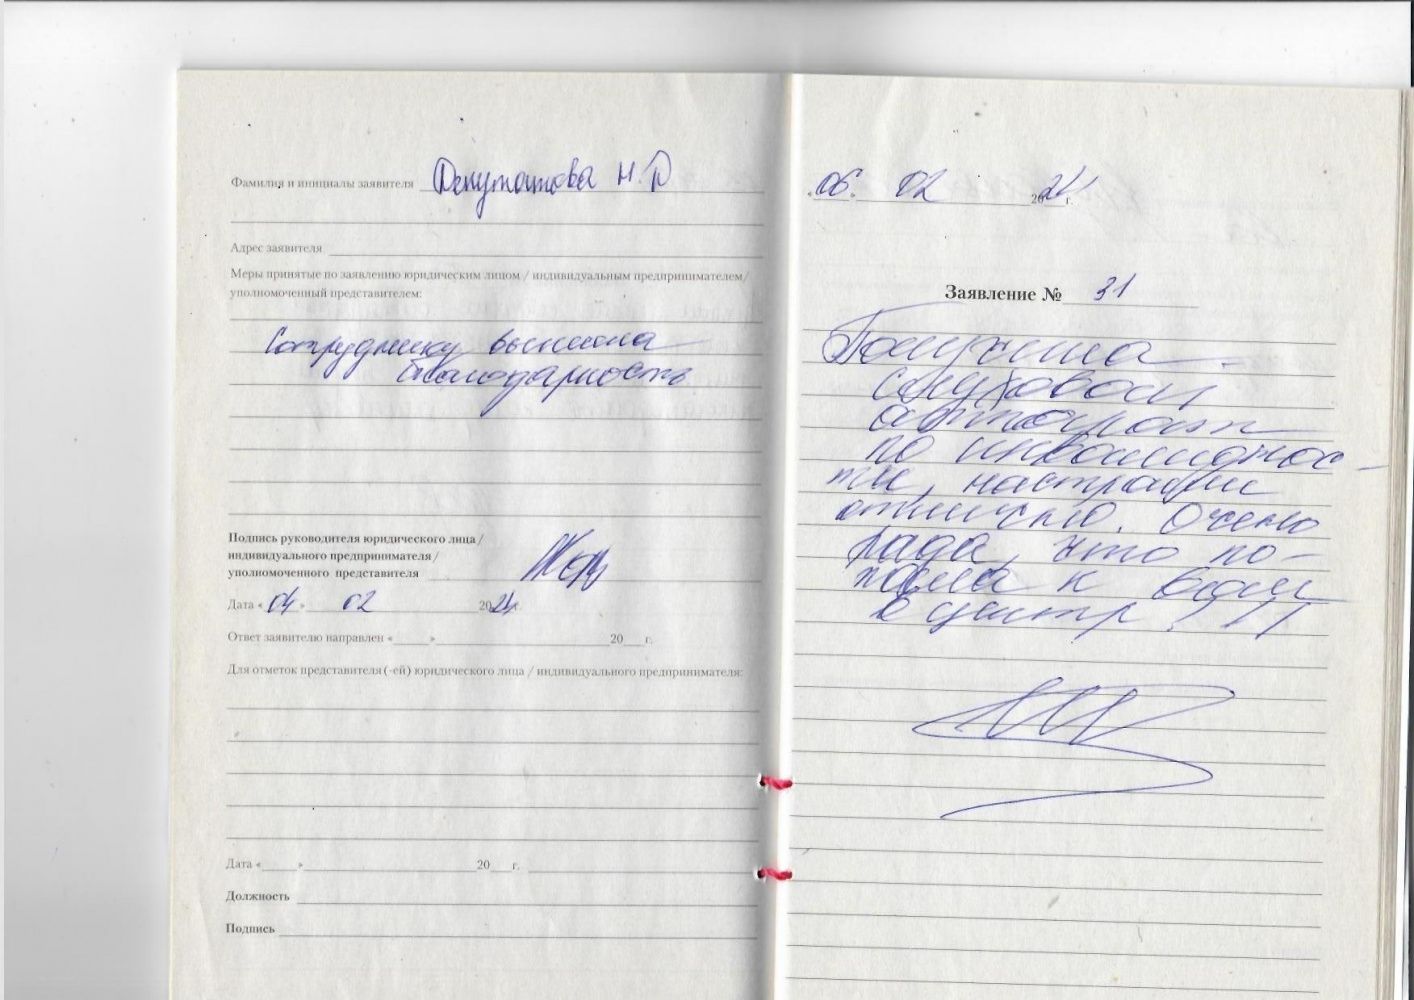 Фамилия и инициалы заявителя Депутатова Н.Д
Адрес заявителя
Меры принятые по заявлению юридическим лицом / индивидуальным предпринимателем/
уполномоченный представителем:
Сотруднику вынесена
благодарность
Подпись руководителя юридического лица /
индивидуального предпринимателя /
уполномоченного представителя
Дата « 04 » 02 2024г.
Ответ заявителю направлен « » 20 г.
Для отметок представителя (-ей) юридического лица / индивидуального предпринимателя:
Дата « » 20 г.
Должность
Подпись
« 06 » 02 2024 г.
Заявление № 31
Получила
слуховой
аппарат
по инвалиднос-
ти, настроили
отлично. Очень
рада, что по-
пала к вам
в центр !!!